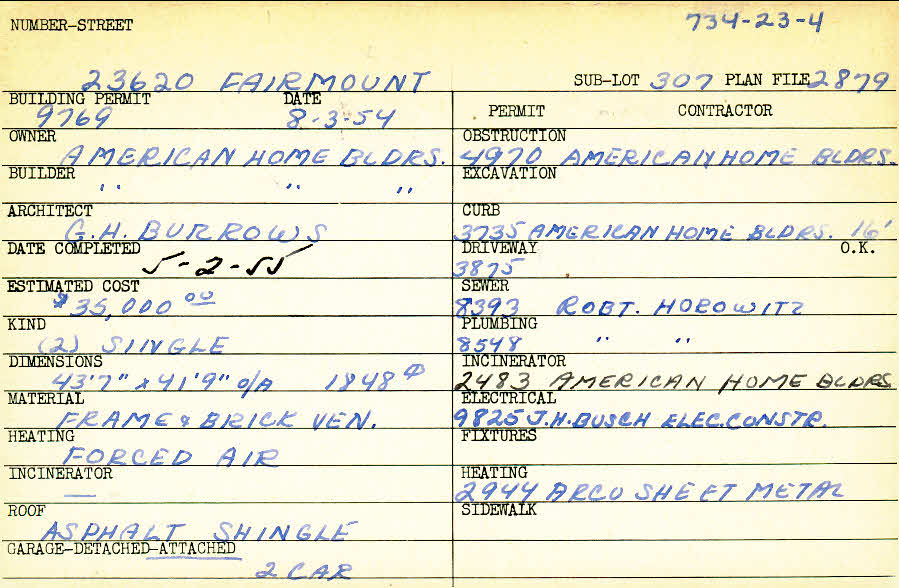 NUMBER-STREET
734-23-4
23620 FAIRMOUNT
SUB-LOT 307 PLAN FILE 2879
BUILDING PERMIT DATE
9769 8-3-54
OWNER
AMERICAN HOME BLDRS.
BUILDER
" " "
ARCHITECT
G.H. BURROWS
DATE COMPLETED
5-2-55
ESTIMATED COST
$35,000 00
KIND
(2) SINGLE
DIMENSIONS
43'7" x 41'9" o/A 1848 ⌽
MATERIAL
FRAME & BRICK VEN.
HEATING
FORCED AIR
INCINERATOR
—
ROOF
ASPHALT SHINGLE
GARAGE-DETACHED-ATTACHED
2 CAR
PERMIT CONTRACTOR
OBSTRUCTION
4970 AMERICAN HOME BLDRS.
EXCAVATION
CURB
3735 AMERICAN HOME BLDRS. 16'
DRIVEWAY O.K.
3875
SEWER
8393 ROBT. HOROWITZ
PLUMBING
8548 " "
INCINERATOR
2483 AMERICAN HOME BLDRS
ELECTRICAL
9825 J.H. BUSCH ELEC. CONSTR.
FIXTURES
HEATING
2944 ARCO SHEET METAL
SIDEWALK